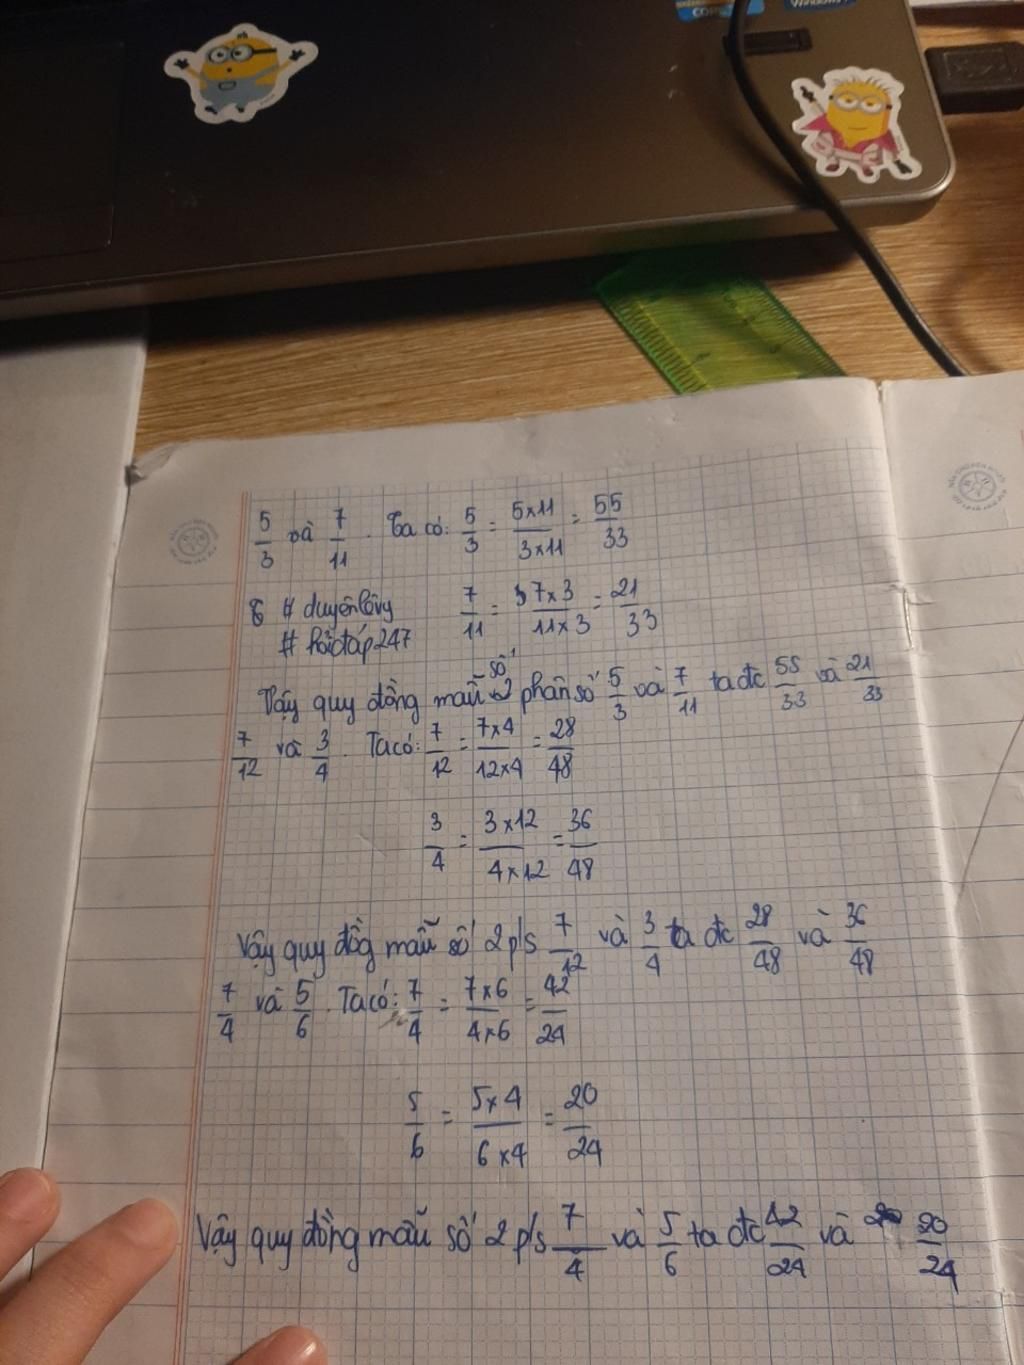 CORE
Windows
5/3 và 7/11 . Ta có: 5/3 = 5×11/3×11 = 55/33
# duyênlovy 7/11 = 7×3/11×3 = 21/33
# hỏiđáp247
Vậy quy đồng mẫu số 2 phân số 5/3 và 7/11 ta đc 55/33 và 21/33
7/12 và 3/4 . Ta có: 7/12 = 7×4/12×4 = 28/48
3/4 = 3×12/4×12 = 36/48
Vậy quy đồg mẫu số 2 p/s 7/12 và 3/4 ta đc 28/48 và 36/48
7/4 và 5/6 . Ta có: 7/4 = 7×6/4×6 = 42/24
5/6 = 5×4/6×4 = 20/24
Vậy quy đồng mẫu số 2 p/s 7/4 và 5/6 ta đc 42/24 và 20/24